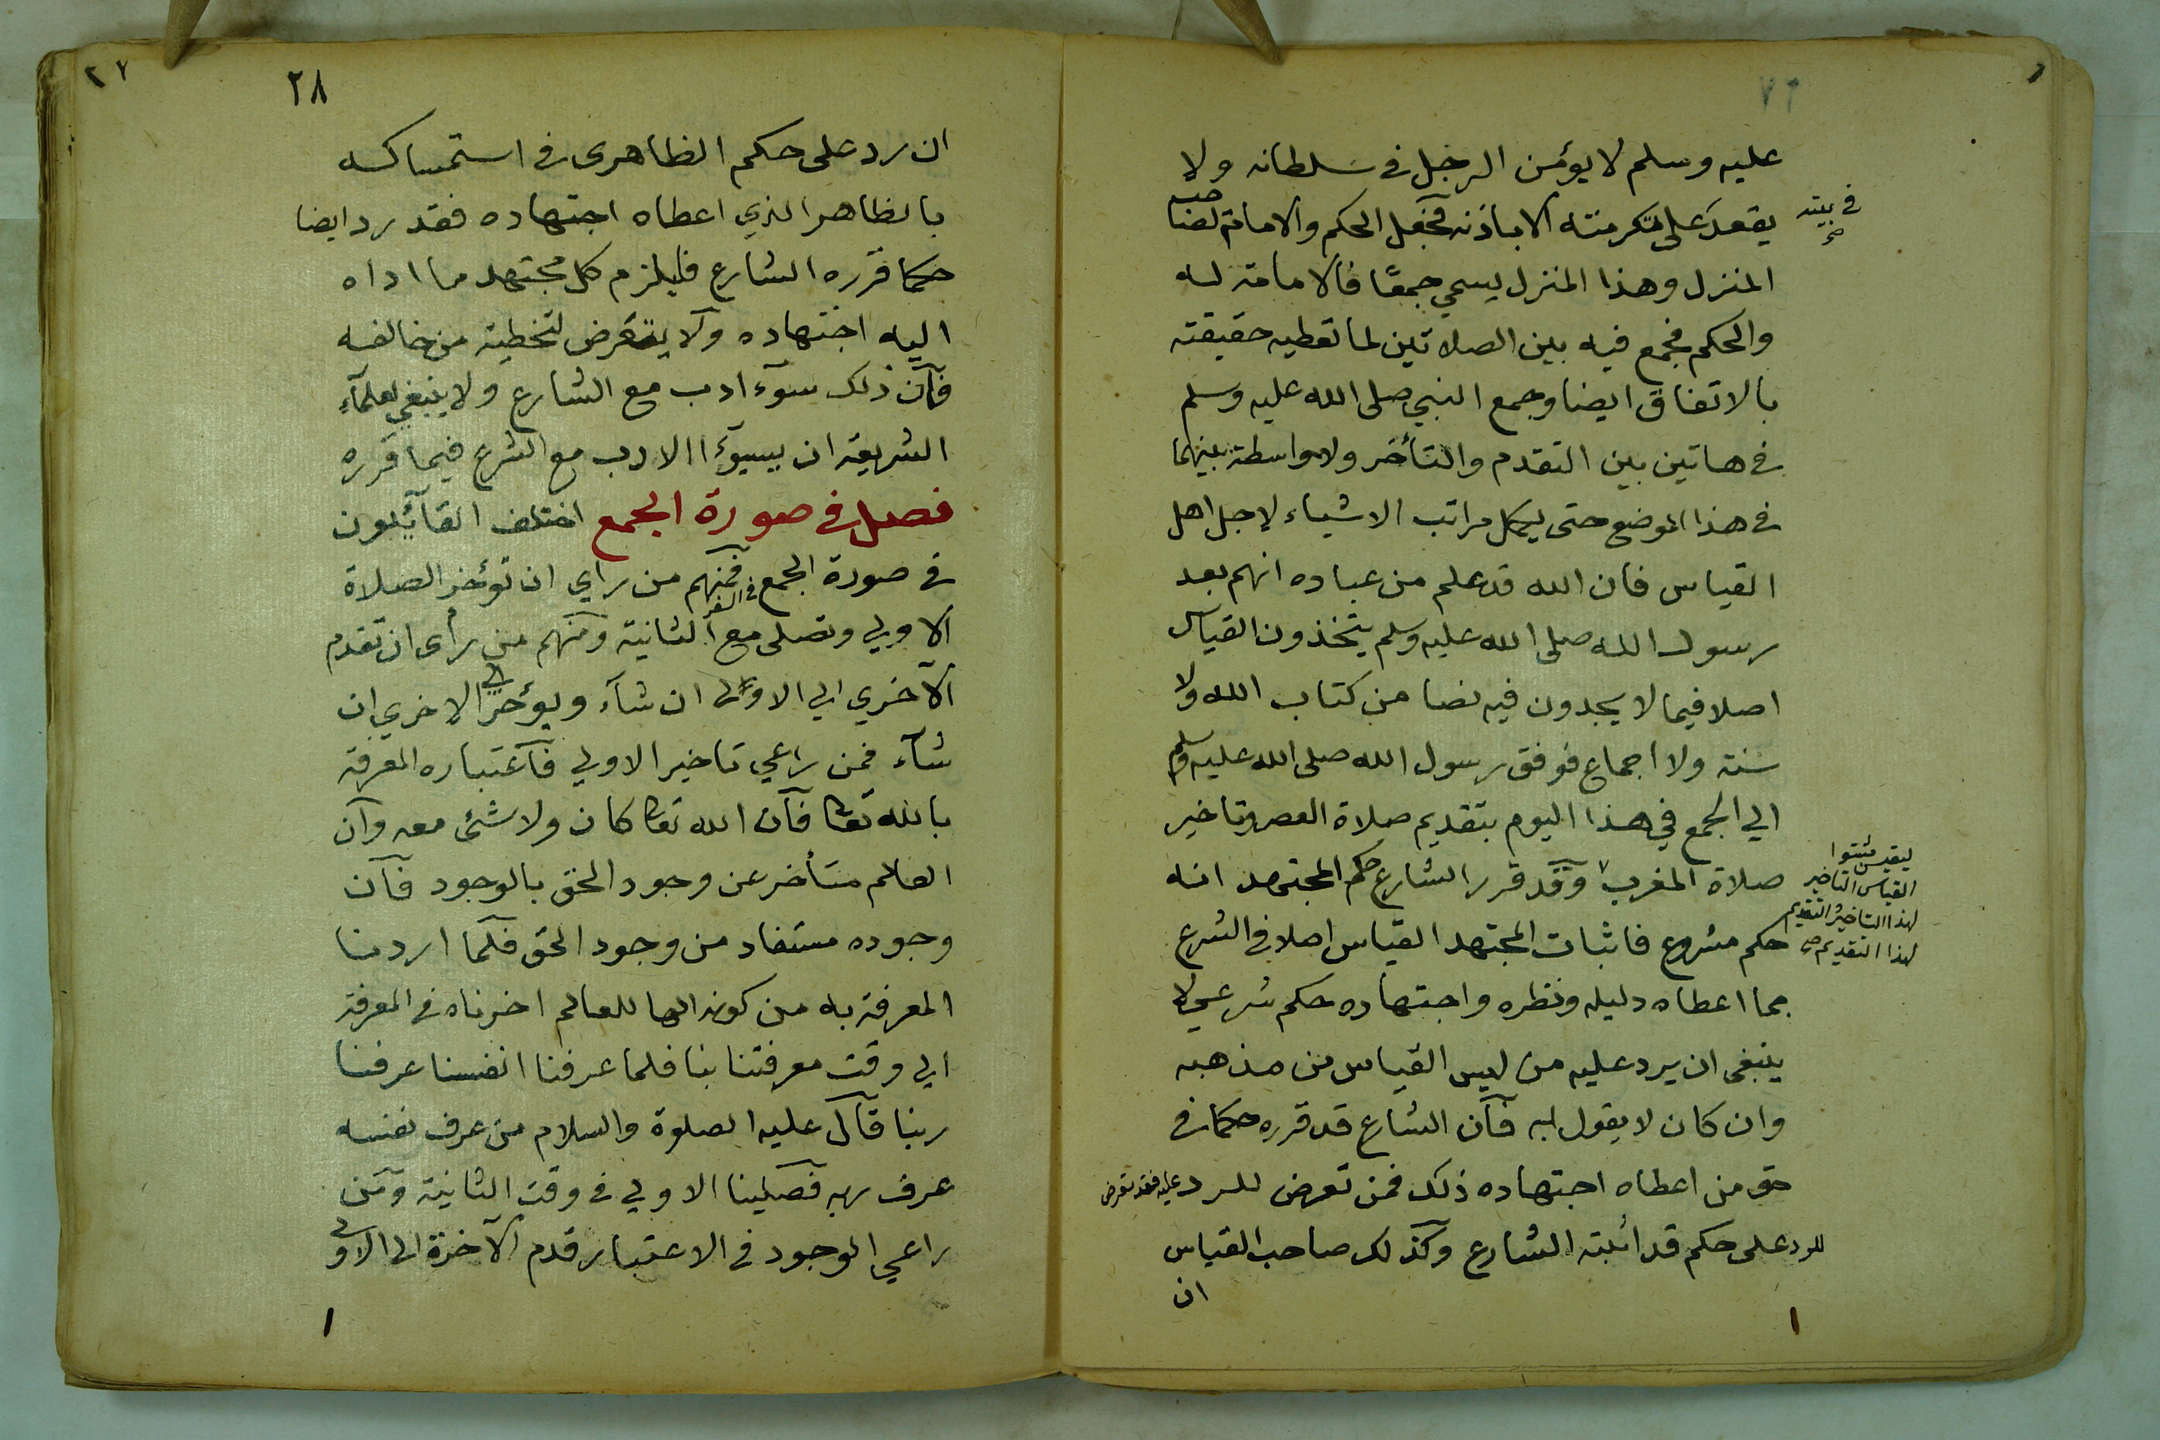 عليه وسلم لا يؤمن الرجل في سلطانه ولا
يقعد على تكرمته الا باذنه فجعل الحكم والامامة لصاحب
في بيته صح
المنزل وهذا المنزل يسمي جمعا فالامامة له
والحكم فجمع فيه بين الصلاتين لما تعطيه حقيقته
بالاتفاق ايضا وجمع النبي صلى الله عليه وسلم
في هاتين بين التقدم والتأخر ولا واسطة بينهما
في هذا الموضع حتى يكمل مراتب الاشياء لاجل اهل
القياس فان الله قد علم من عباده انهم بعد
رسول الله صلى الله عليه وسلم يتخذون القياس
اصلا فيما لا يجدون فيه نصا من كتاب الله ولا
سنة ولا اجماع فوفق رسول الله صلى الله عليه وسلم
الي الجمع في هذا اليوم بتقديم صلاة العصر وتاخير
صلاة المغرب وقد قرر الشارع حكم المجتهد انه
ليقيس مثبتوا
القياس التاخير
لهذا التاخير والتقديم
لهذا التقديم صح
حكم مشروع فاثبات المجتهد القياس اصلا في الشرع
بما اعطاه دليله ونظره واجتهاده حكم شرعي لا
ينبغي ان يرد عليه من ليس القياس من مذهبه
وان كان لا يقول به فان الشارع قد قرره حكما في
حق من اعطاه اجتهاده ذلك فمن تعرض للرد عليه فقد تعرض
للرد على حكم قد اثبته الشارع وكذلك صاحب القياس
ان
٢٨
ان رد على حكم الظاهرى في استمساكه
بالظاهر الذي اعطاه اجتهاده فقد رد ايضا
حكما قرره الشارع فليلزم كل مجتهد ما اداه
اليه اجتهاده ولا يتعرض لتخطية من خالفه
فان ذلك سوء ادب مع الشارع ولا ينبغي لعلمآء
الشريعة ان يسيؤا الادب مع الشرع فيما قرره
فصل في صورة الجمع اختلف القآئلون
في صورة الجمع في السفر فمنهم من راي ان تؤخر الصلاة
الاولي وتصلى مع الثانية ومنهم من رأى ان تقدم
الآخري الي الاولى ان شآء ويؤخر الي الاخري ان
شآء فمن راعي تاخير الاولي فاعتباره المعرفة
بالله تعا فان الله تعا كان ولا شئ معه وان
العالم متأخر عن وجود الحق بالوجود فان
وجوده مستفاد من وجود الحق فلما اردنا
المعرفة به من كونه الها للعالم اخرناه في المعرفة
الي وقت معرفتنا بنا فلما عرفنا انفسنا عرفنا
ربنا قال عليه الصلوة والسلام من عرف نفسه
عرف ربه فصلينا الاولي في وقت الثانية ومن
راعي الوجود في الاعتبار قدم الآخرة الى الاولي